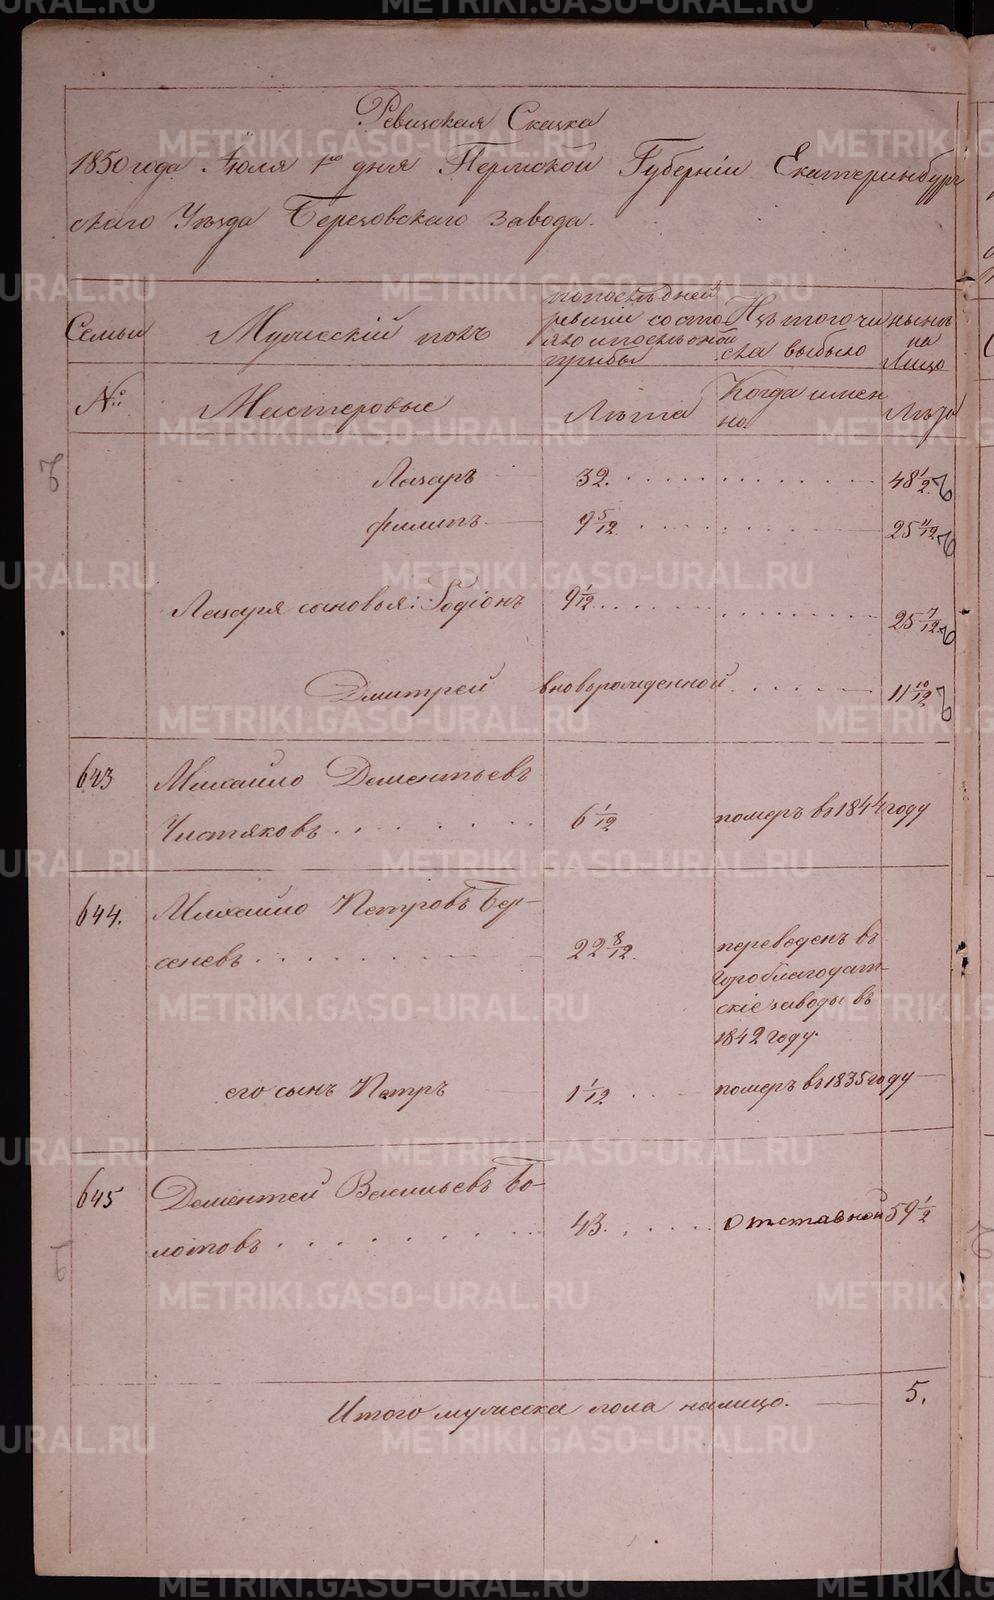 Ревизская Сказка
1850 года Іюля 1го дня Пермской Губерніи Екатеринбург
скаго Уѣзда Березовскаго завода.
Семьи
Мужескій полъ
по последней
ревизіи состо-
яло и после оной
прибы
Изъ того чи
сла выбыло
ныне
на
Лицо
№:
Мастеровые
Лѣта
Когда имен
но.
Лѣта
Лазарь 32. 48 1/2
Филипъ 9 5/12 25 11/12
Лазаря сыновья: Родіонъ 9 1/12 25 7/12
Дмитрей вновьрожденной 11 10/12
643 Михайло Дементьевъ
Чистяковъ 6 1/12 померъ въ 1844 году
644. Михайло Петровъ Бер-
сеневъ 22 8/12. переведенъ въ
Гороблагодат-
скіе заводы въ
1842 году.
его сынъ Петръ 1 1/12 померъ въ 1835 году
645 Дементей Васильевъ Бо-
лотовъ 43. Отставной 59 1/2
Итого мужеска пола налицо. 5.
METRIKI.GASO-URAL.RU